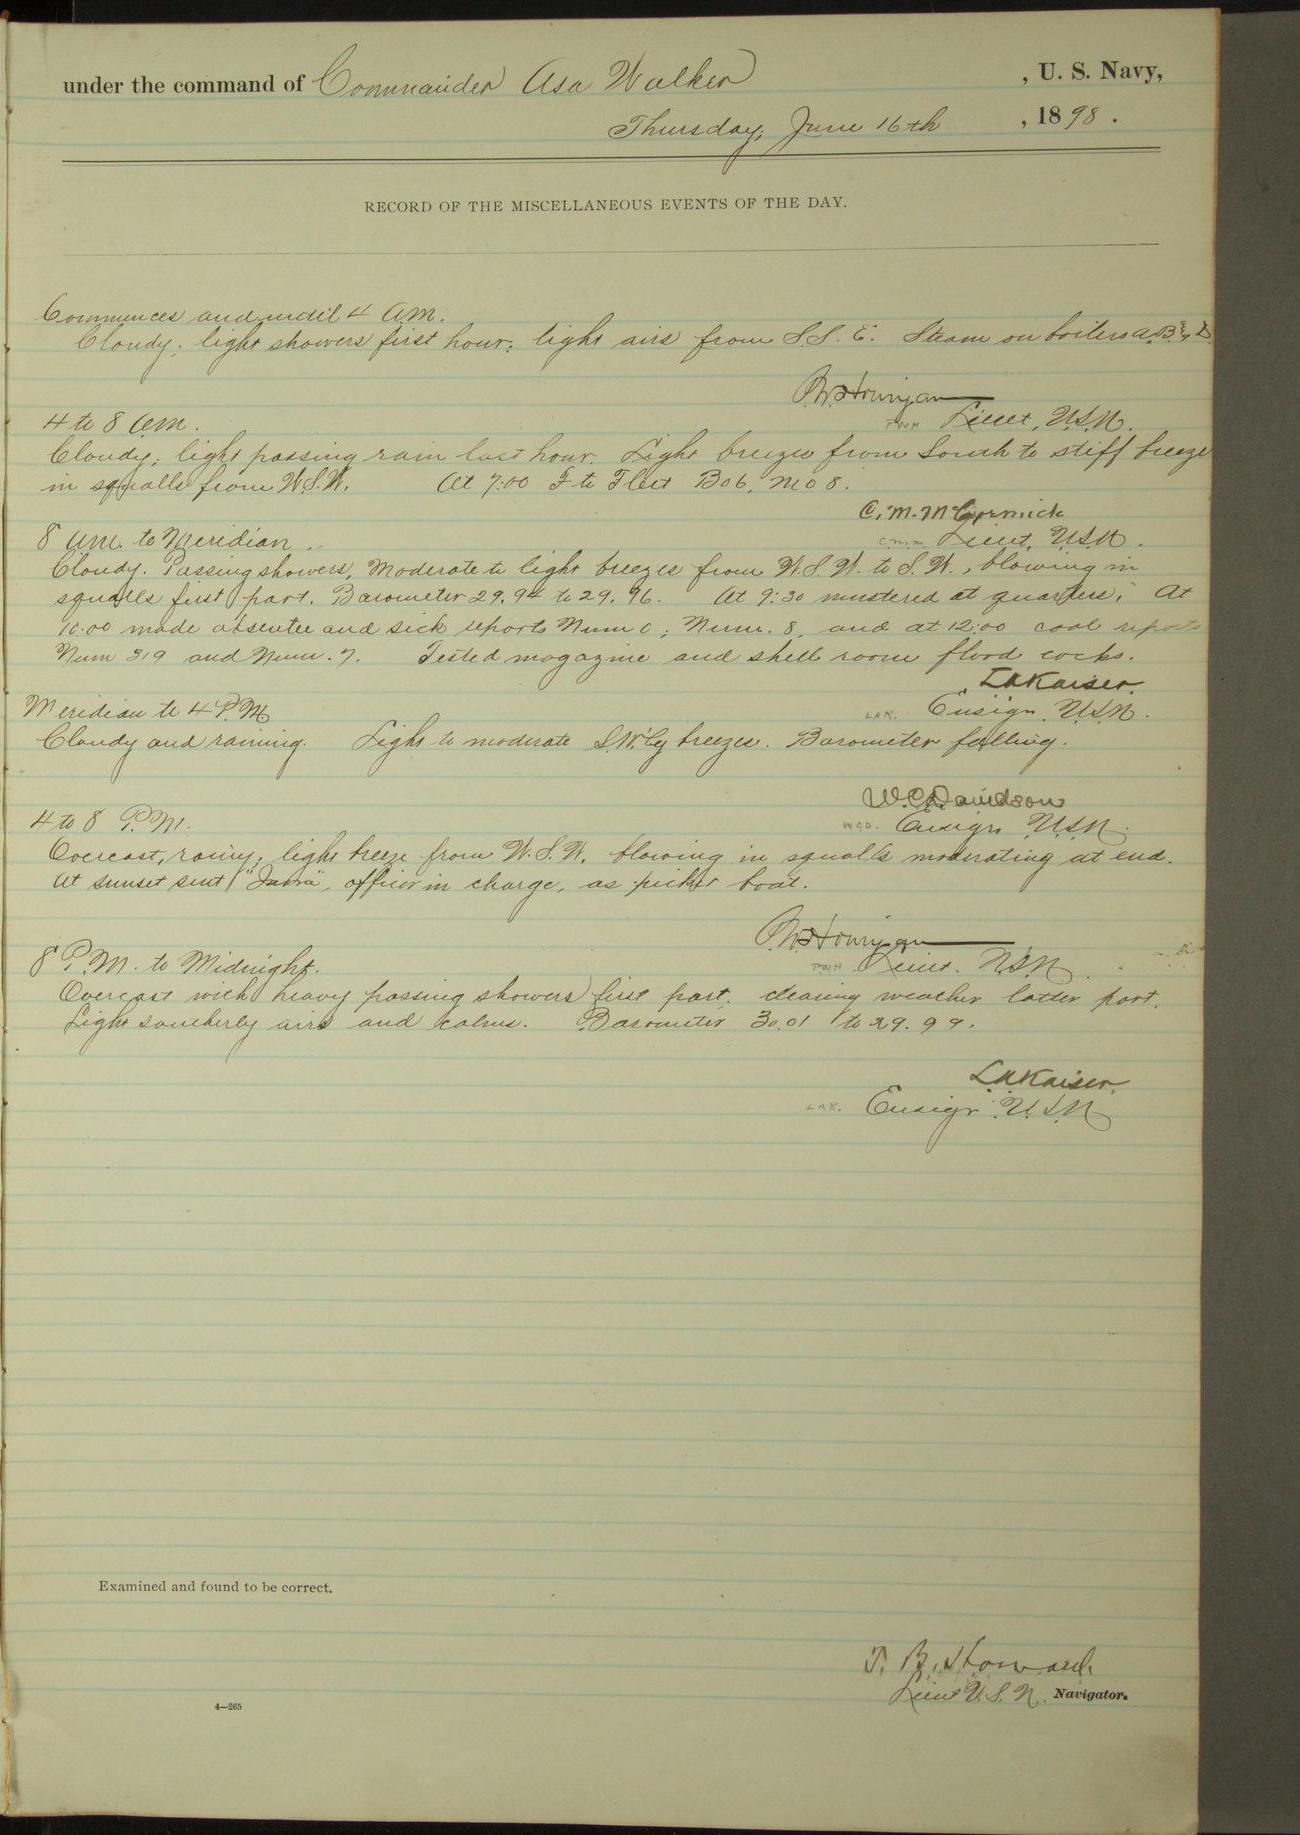 under the command of Commander Asa Walker , U. S. Navy,
Thursday, June 16th , 1898.
RECORD OF THE MISCELLANEOUS EVENTS OF THE DAY.
Commences and until 4 A.M.
Cloudy; light showers first hour; light airs from S.S.E. Steam on boilers A, B & D.
P.W. Hourigan
PWH Lieut, U.S.N.
4 to 8 A.M.
Cloudy; light passing rain last hour. Light breeze from South to stiff breeze
in squalls from W.S.W. At 7:00 F to Fleet B06, M08.
C. M. McCormick
C.M.M. Lieut, U.S.N.
8 A.M. to Meridian
Cloudy. Passing showers, Moderate to light breezes from W.S.W. to S.W., blowing in
squalls first part. Barometer 29.94 to 29.96. At 9:30 mustered at quarters; At
10:00 made absentee and sick reports Num 0; Num. 8, and at 12:00 coal reports
Num 319 and Num. 7. Tested magazine and shell room flood cocks.
L A Kaiser.
LAK. Ensign U.S.N.
Meridian to 4 P.M.
Cloudy and raining. Light to moderate S.W'ly breezes. Barometer falling.
W.C. Davidson
WCD. Ensign U.S.N.
4 to 8 P.M.
Overcast, rainy; light breeze from W.S.W. blowing in squalls moderating at end.
At sunset sent officer in charge, as picket boat.
P.W. Hourigan
PWH Lieut. U.S.N.
8 P.M. to Midnight.
Overcast with heavy passing showers first part, clearing weather latter part.
Light southerly airs and calms. Barometer 30.01 to 29.99.
L A Kaiser.
LAK. Ensign U.S.N.
Examined and found to be correct.
T. B. Howard,
Lieut U.S.N. Navigator.
4—265